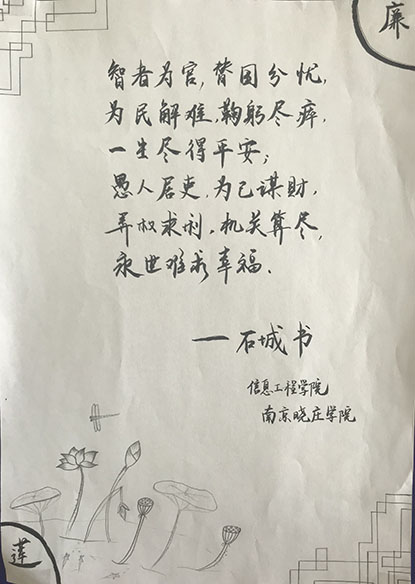 廉
智者为官，替国分忧，
为民解难，鞠躬尽瘁，
一生尽得平安；
愚人居吏，为己谋财，
弄权求利，机关算尽，
永世难求幸福．
——石城书
信息工程学院
南京晓庄学院
莲